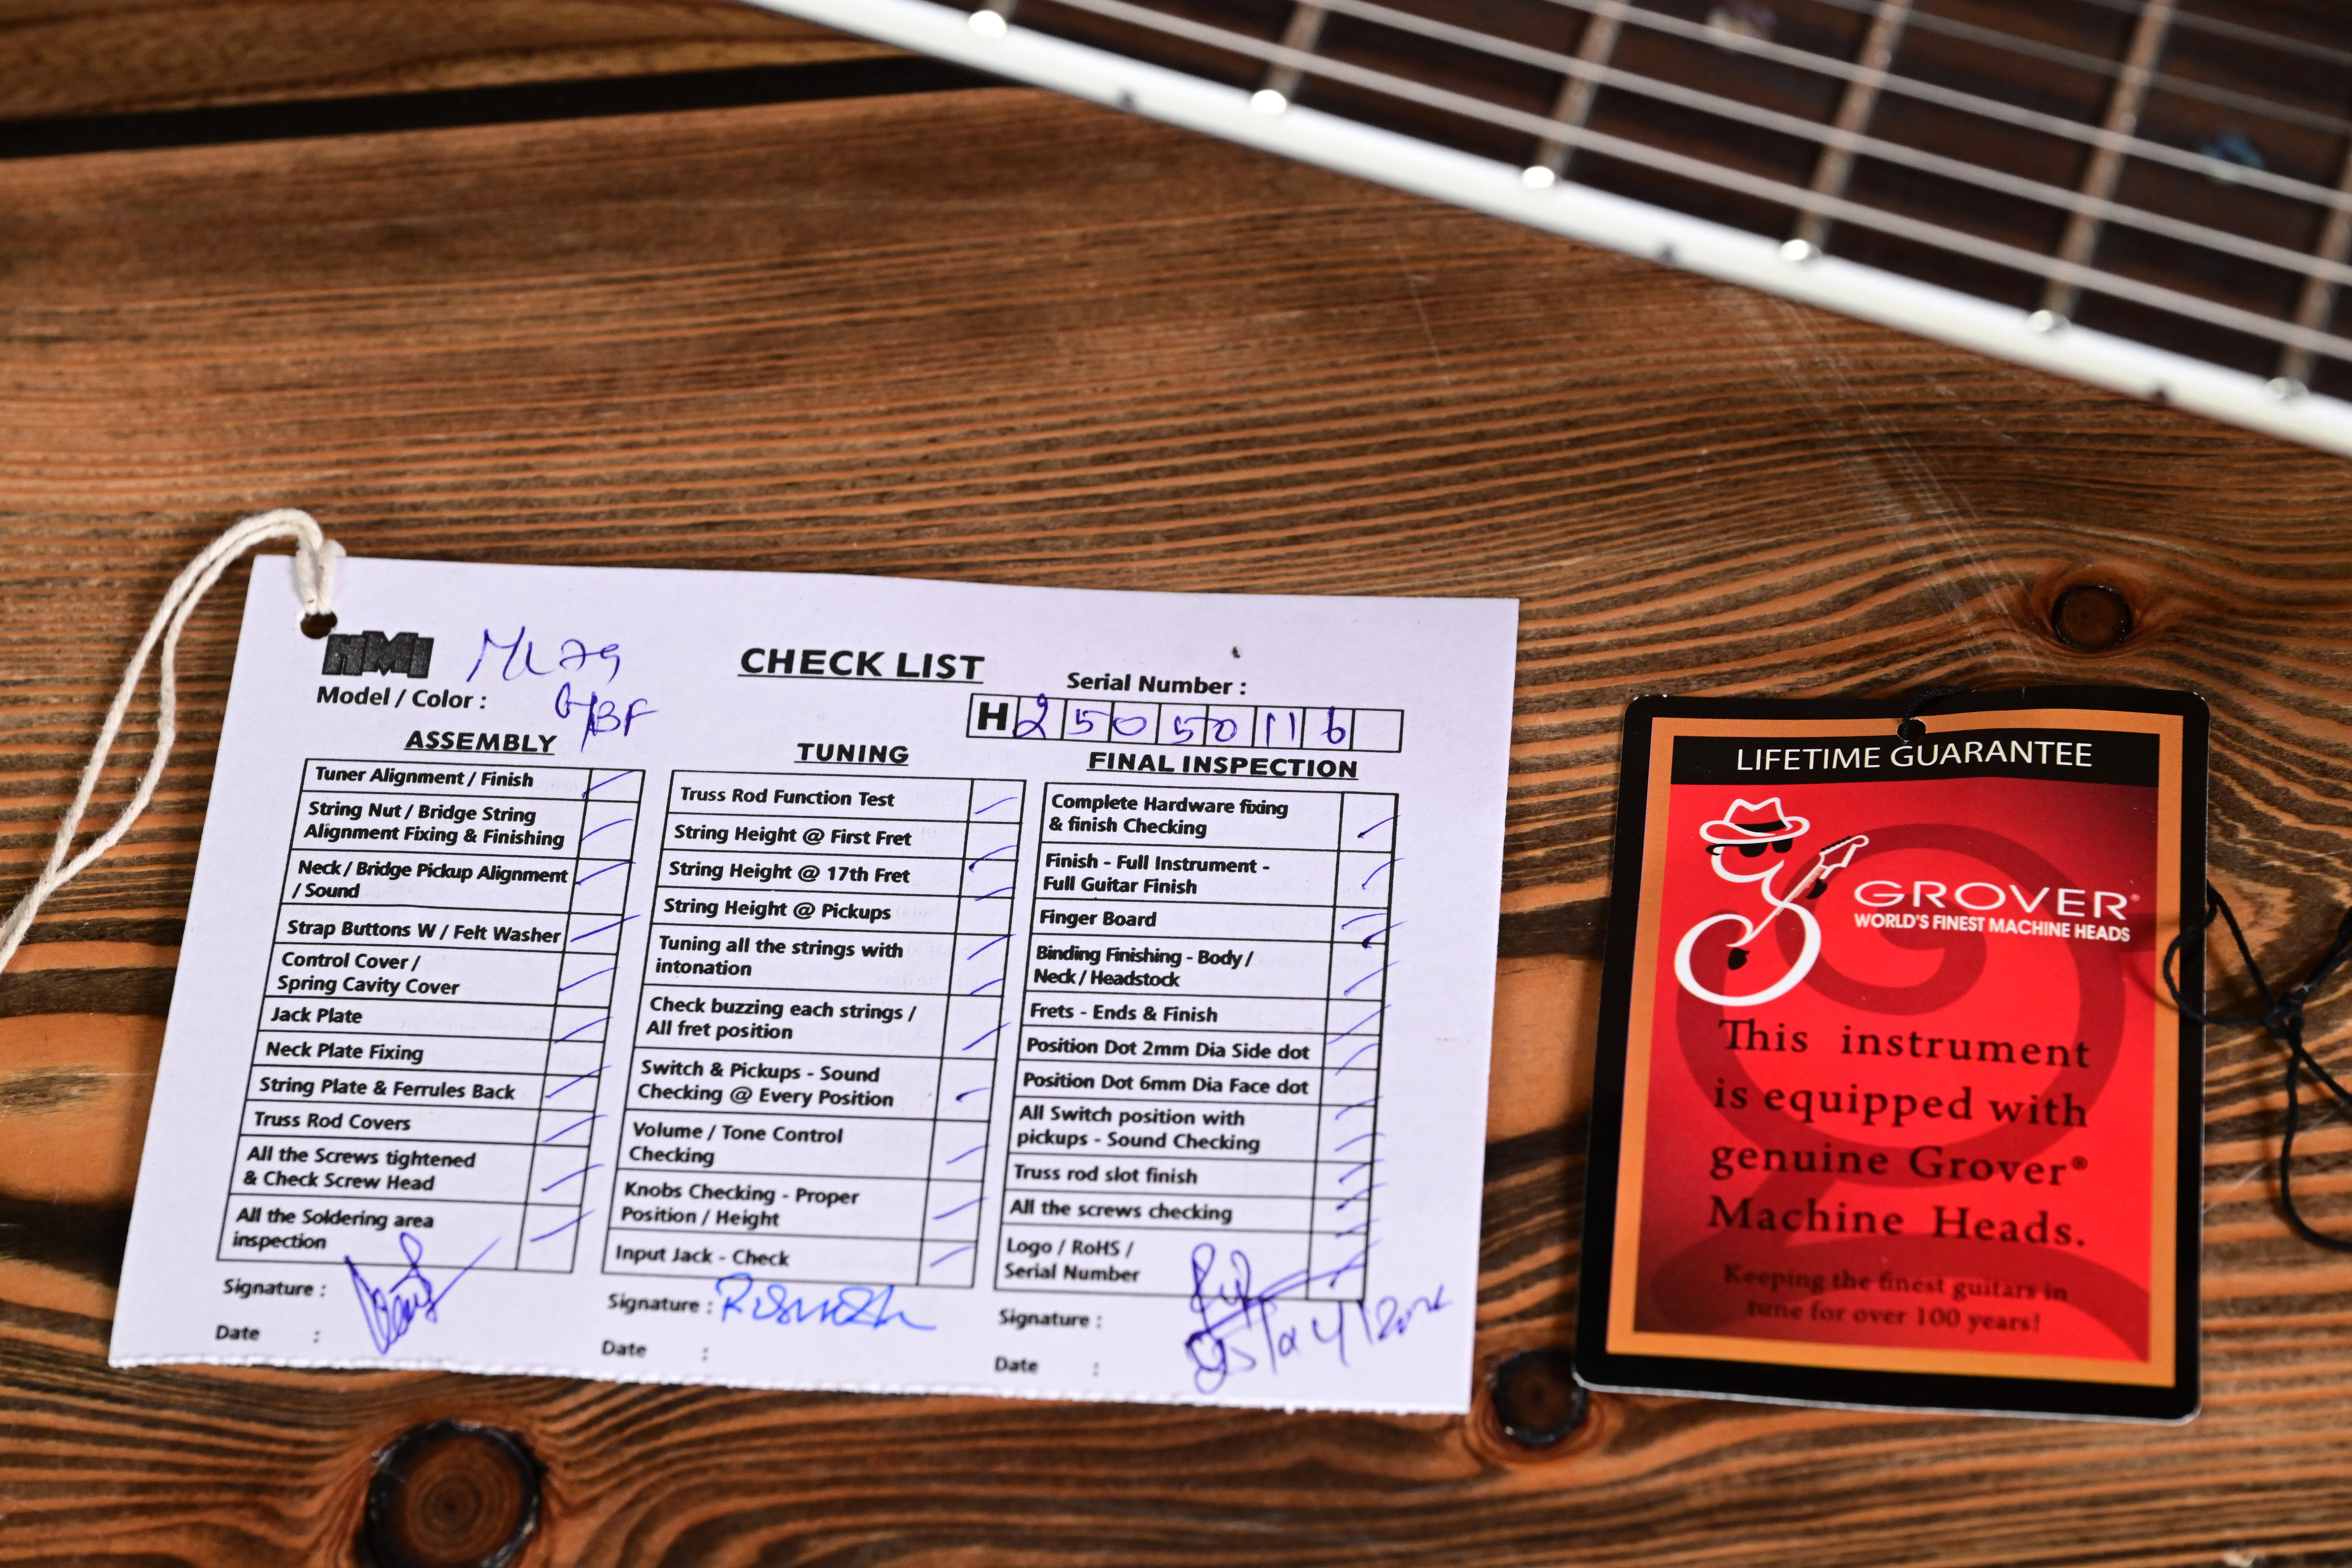 HMI
ML79
Model / Color :
G/BF
CHECK LIST
Serial Number :
H 2 5 0 5 0 11 6
ASSEMBLY
Tuner Alignment / Finish
String Nut / Bridge String
Alignment Fixing & Finishing
Neck / Bridge Pickup Alignment
/ Sound
Strap Buttons W / Felt Washer
Control Cover /
Spring Cavity Cover
Jack Plate
Neck Plate Fixing
String Plate & Ferrules Back
Truss Rod Covers
All the Screws tightened
& Check Screw Head
All the Soldering area
inspection
Signature :
Date :
TUNING
Truss Rod Function Test
String Height @ First Fret
String Height @ 17th Fret
String Height @ Pickups
Tuning all the strings with
intonation
Check buzzing each strings /
All fret position
Switch & Pickups - Sound
Checking @ Every Position
Volume / Tone Control
Checking
Knobs Checking - Proper
Position / Height
Input Jack - Check
Signature :
Date :
FINAL INSPECTION
Complete Hardware fixing
& finish Checking
Finish - Full Instrument -
Full Guitar Finish
Finger Board
Binding Finishing - Body /
Neck / Headstock
Frets - Ends & Finish
Position Dot 2mm Dia Side dot
Position Dot 6mm Dia Face dot
All Switch position with
pickups - Sound Checking
Truss rod slot finish
All the screws checking
Logo / RoHS /
Serial Number
Signature :
Date :
LIFETIME GUARANTEE
GROVER®
WORLD'S FINEST MACHINE HEADS
This instrument
is equipped with
genuine Grover®
Machine Heads.
Keeping the finest guitars in
tune for over 100 years!